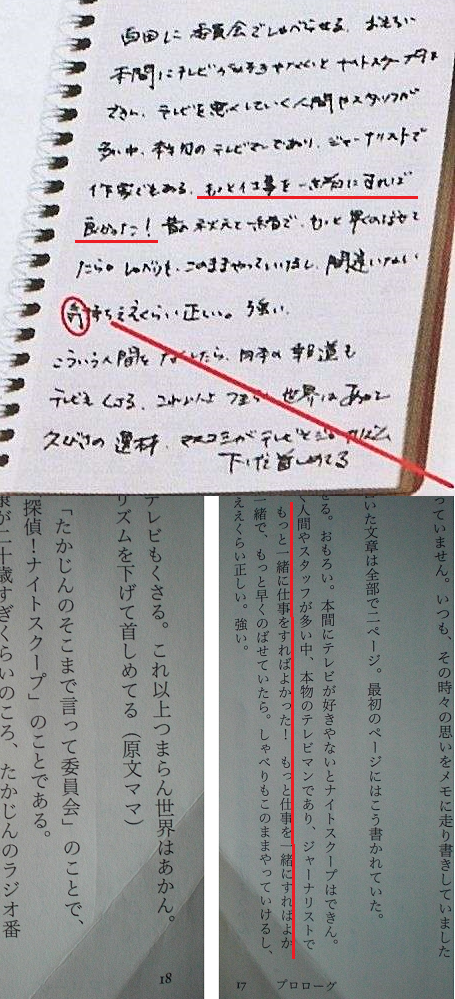 百田に委員会でしゃべらせる、おもろい
本間にテレビが好きやないとナイトスクープは
できん、テレビを悪くしていく人間やスタッフが
多い中、本物のテレビマンであり、ジャーナリストで
作家でもある、もっと仕事を一緒にすれば
良かった! 昔の秋元と一緒で、もっと早くのばせて
たら。しゃべりも、このままやっていけるし、間違いない
気持ちええくらい正しい。強い、
こういう人間をなくしたら、日本の報道も
テレビもくさる、これ以上つまらん世界はあかん
久びさの逸材、マスコミがテレビと
下げて首しめてる
っていません。いつも、その時々の思いをメモに走り書きしていました
いた文章は全部で二ページ。最初のページにはこう書かれていた。
せる。おもろい。本間にテレビが好きやないとナイトスクープはできん。
く人間やスタッフが多い中、本物のテレビマンであり、ジャーナリストで
もっと一緒に仕事をすればよかった! もっと仕事を一緒にすればよか
一緒で、もっと早くのばせていたら。しゃべりもこのままやっていけるし、
ええくらい正しい。強い。
17 プロローグ
テレビもくさる。これ以上つまらん世界はあかん。
リズムを下げて首しめてる(原文ママ)
「たかじんのそこまで言って委員会」のことで、
探偵!ナイトスクープ」のことである。
が二十歳すぎくらいのころ、たかじんのラジオ番
18